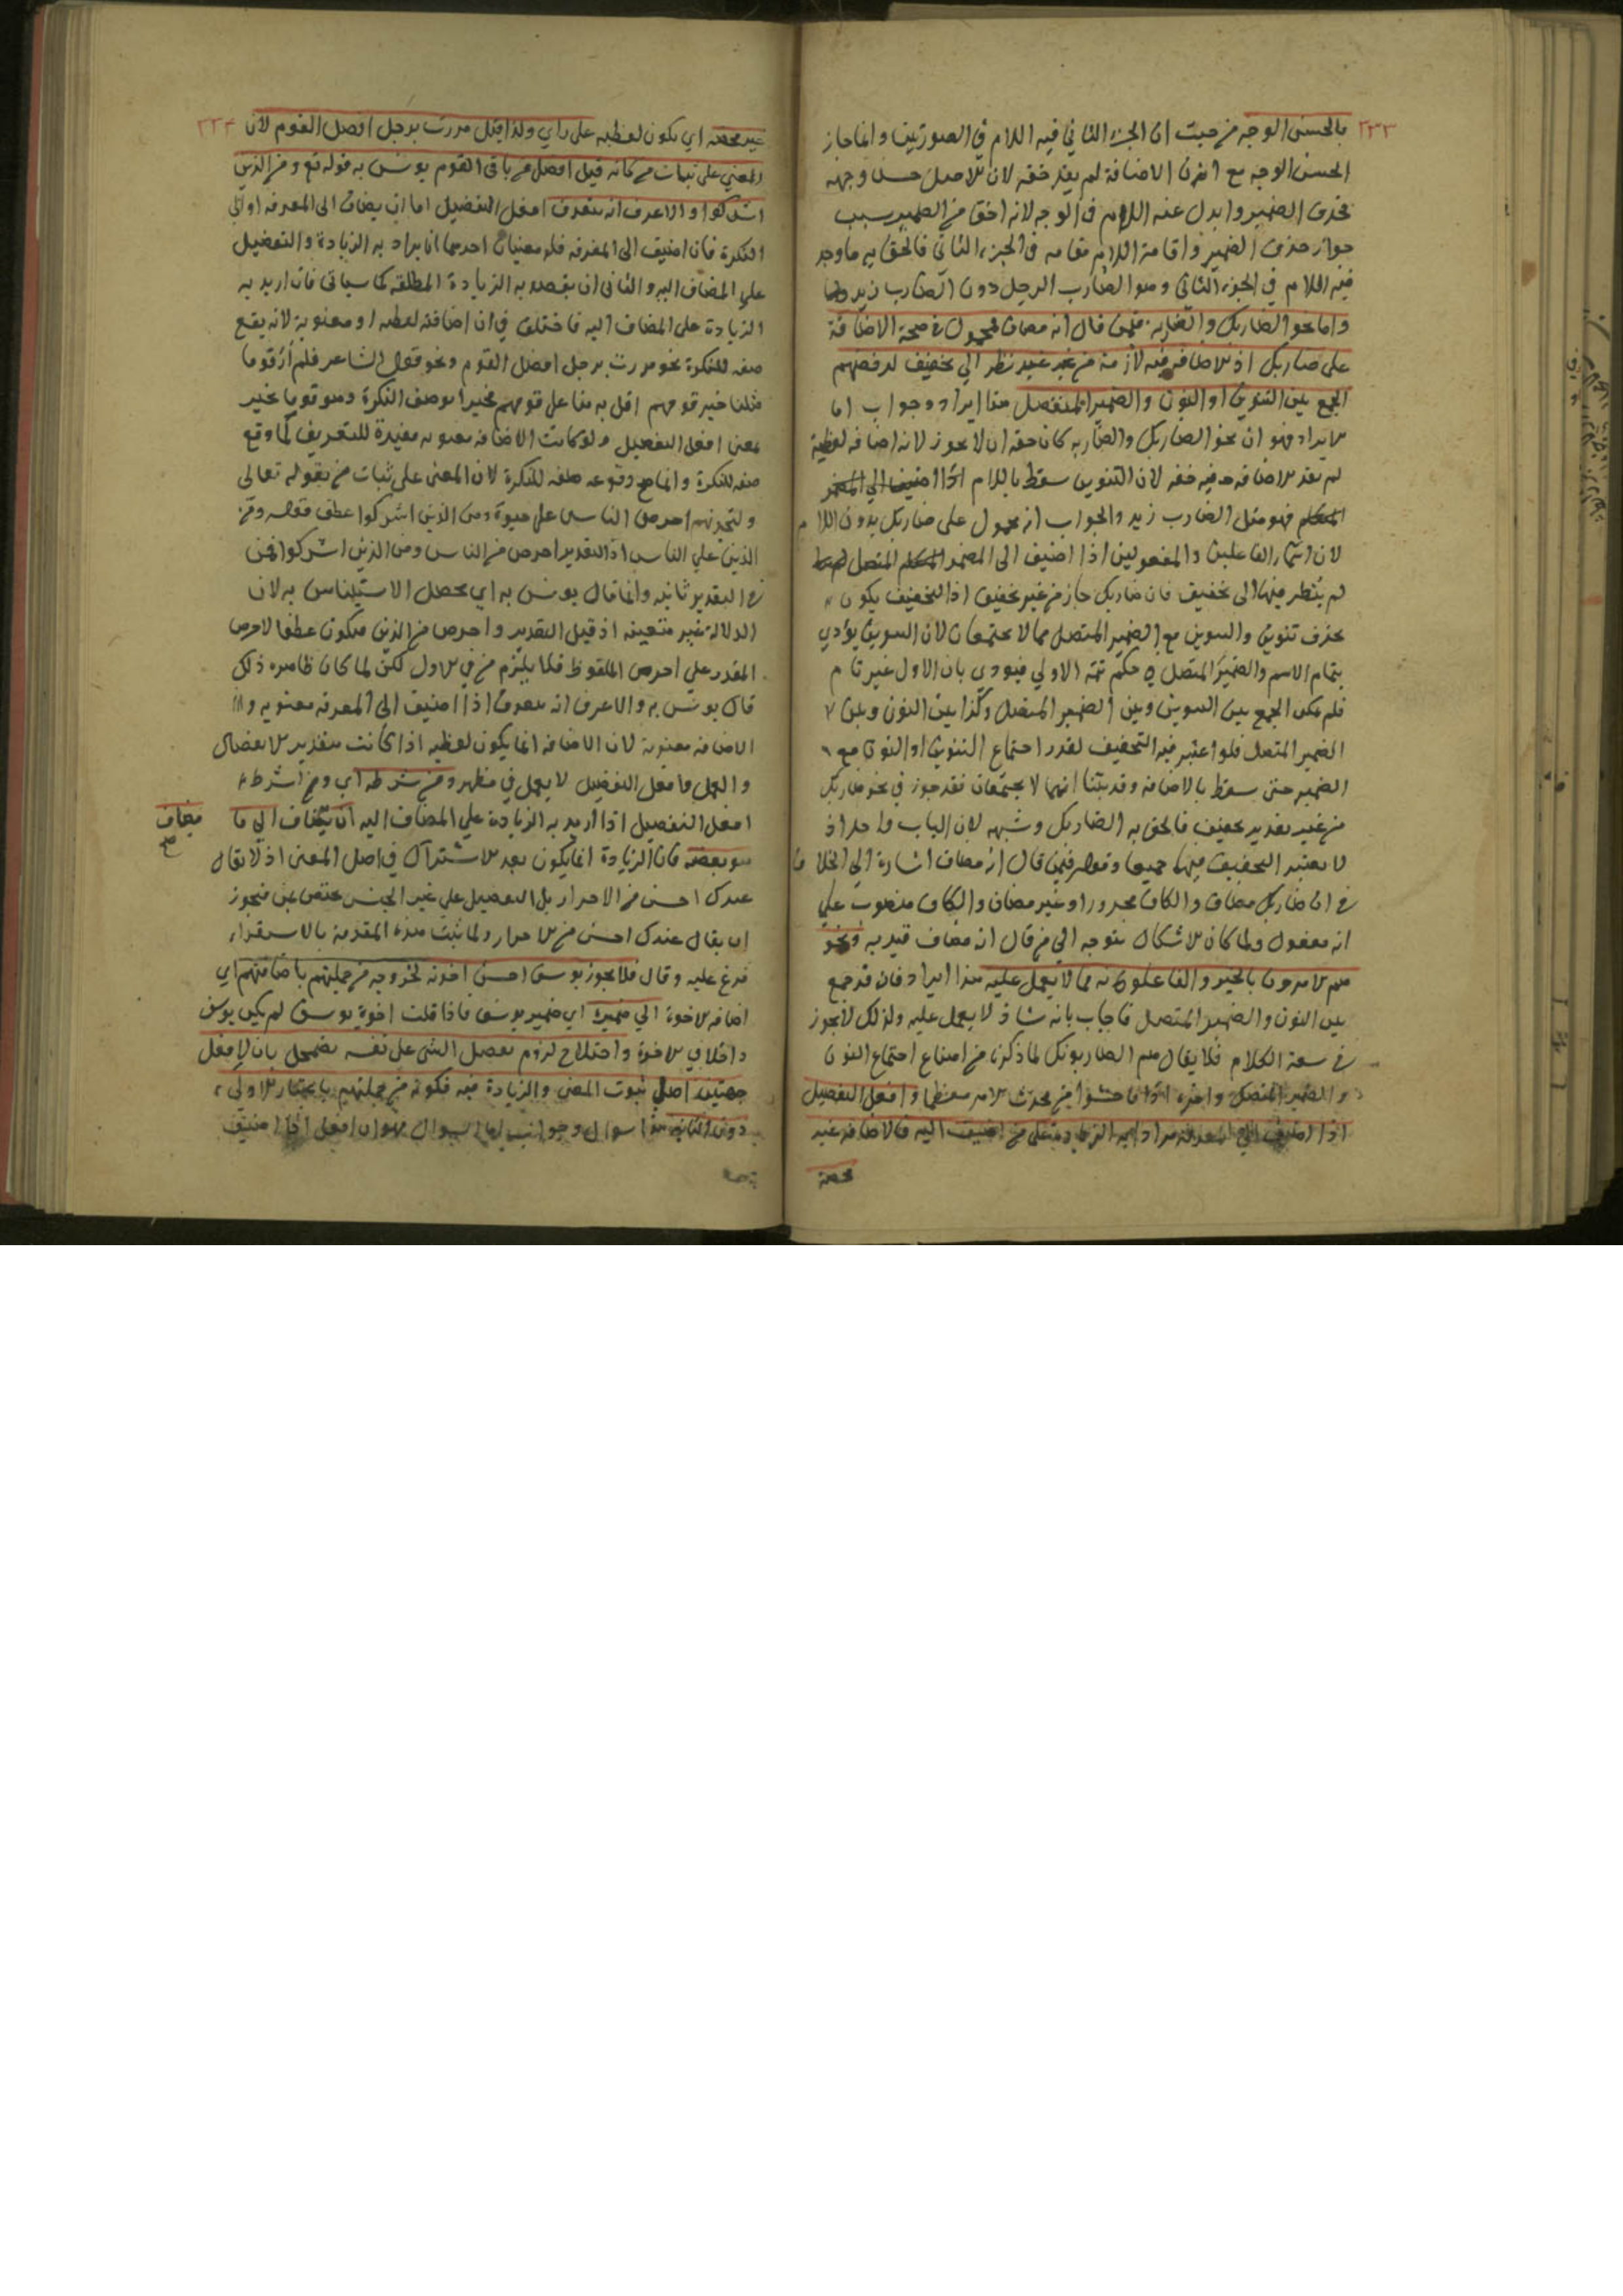 ٢٣٣
بالحسن الوجه من حيث ان الجزء الثاني فيه اللام في الصورتين وانما جاز
الحسن الوجه مع ان الاضافة لم يفد خفة لان الاصل حسن وجهه
بحذف الضمير وابدل عنه اللام في الوجه لانه اخف من الضمير بسبب
جواز حذف الضمير واقامة اللام مقامه في الجزء الثاني فالحق به ما وجد
فيه اللام في الجزء الثاني وهو الضارب الرجل دون الضارب زيد
واما نحو الضاربك والضاربه فيمن قال انه مضاف فمحمول في صحة الاضافة
على ضاربك اذ الاضافة فيه لازمة من غير نظر الي تخفيف لرفضهم
الجمع بين التنوين او النون والضمير المتصل هذا ايراد وجواب اما
الايراد فهو ان نحو الضاربك والضاربه كان حقه ان لا يجوز لانه اضافة لفظية
لم يفد الاضافة فيه خفة لان التنوين سقط باللام
فهو مثل الضارب زيد والجواب انه محمول على ضاربك بدون اللام
لان اسماء الفاعلين والمفعولين اذا اضيف الى المضمر المتصل
لم ينظر فيها الى تخفيف فان ضاربك جاز من غير تخفيف اذ التخفيف يكون
بحذف تنوين والتنوين مع الضمير المتصل مما لا يجتمعان لان التنوين يؤدي
بتمام الاسم والضمير المتصل في حكم تتمة الاولي فيودي بان الاول غير تام
فلم يمكن الجمع بين التنوين وبين الضمير المتصل وكذا بين النون وبين
الضمير المتصل فلو اعتبر فيه التخفيف لقدر اجتماع التنوين او النون مع
الضمير حتى سقط بالاضافة وقد بينا انهما لا يجتمعان فقد جوز في نحو ضاربك
من غير تقدير تخفيف فالحق به الضاربك وشبهه لان الباب واحد اذ
لا يعتبر التخفيف فيهما جميعا وقوله فيمن قال انه مضاف اشارة الي الخلاف
في ان ضاربك مضاف والكاف مجرور او غير مضاف والكاف منصوب علي
انه مفعول ولما كان الاشكال يتوجه الي من قال انه مضاف قيد به ونحو
هم الامرون بالخير والفاعلونه مما لا يعمل عليه هذا ايراد فان قد جمع
بين النون والضمير المتصل فاجاب بانه شاذ لا يعمل عليه ولذلك لا يجوز
في سعة الكلام فلا يقال هم الضاربونك لما ذكرنا من امتناع اجتماع النون
والضمير المتصل واخره اذا ما خشوا من محدث الامر معظما وافعل التفضيل
اذا اضيف الي المعرفة مرادا به الزيادة على من اضيف اليه فالاضافة غير
محضة
٢٣٤
غير محضة اي يكون لفظية على راي ولذا قيل مررت برجل افضل القوم لان
المعني على ثبات من كانه قيل افضل من باقي القوم يونس به قوله تع ومن الذين
اشركوا والاعرف انه يتعرف افعل التفضيل اما ان يضاف الى المعرفة او الي
النكرة فان اضيف الى المعرفة فله معنيان احدهما ان يراد به الزيادة والتفضيل
علي المضاف اليه والثاني ان يقصد به الزيادة المطلقة كما سياتي فان اريد به
الزيادة على المضاف اليه فاختلف في ان اضافته لفظية او معنوية لانه يقع
صفة للنكرة نحو مررت برجل افضل القوم ونحو قول الشاعر فلم ار قوما
مثلنا خير قومهم اقل به منا على قومهم فخرا بوصف النكرة وهو قوما بخير
بمعنى افعل التفضيل ولو كانت الاضافة معنوية مفيدة للتعريف لما وقع
صفة للنكرة وانما صح وقوعه صفة للنكرة لان المعنى على ثبات من بقوله تعالى
ولتجدنهم احرص الناس على حيوة ومن الذين اشركوا عطف قوله ومن
الذين علي الناس اذ التقدير احرص من الناس ومن الذين اشركوا فمن
في التقدير ثابتة وانما قال يونس به اي يحصل الاستيناس به لان
الدلالة غير متعينة اذ قيل التقدير واحرص من الذين فيكون عطفا لاحرص
المقدر علي احرص الملفوظ فلا يلزم من في الاول لكن لما كان ظاهره ذلك
قال يونس به والاعرف انه يتعرف اذا اضيف الى المعرفة معنوية
الاضافة معنوية لان الاضافة انما يكون لفظية اذا كانت بتقدير الانفصال
والعمل وافعل التفضيل لا يعمل في مظهر ومن شرطه اي ومن شرط
افعل التفضيل اذا اريد به الزيادة علي المضاف اليه ان يضاف الي ما
مضاف
هو بعضه فان الزيادة انما يكون بعد الاشتراك في اصل المعنى اذ لا يقال
عبدك احسن من الاحرار بل التفضيل علي غير الجنس مختص بمن فيجوز
ان يقال عبدك احسن من الاحرار ولما ثبت هذه المقدمة بالاستقراء
فرع عليه وقال فلا يجوز يوسف احسن اخوته لخروجه من جملتهم باضافتهم اي
اضافة الاخوة الي ضميره اي ضمير يوسف فاذا قلت اخوة يوسف لم يكن يوسف
داخلا في الاخوة واختلاج لزوم تفضل الشي على نفسه يضمحل بان لافعل
جهتين اصل ثبوت المعنى والزيادة فيه فكونه من جملتهم باعتبار الاولي
دون الثانية هذا سوال وجواب اما السوال فهو ان افعل اذا اضيف